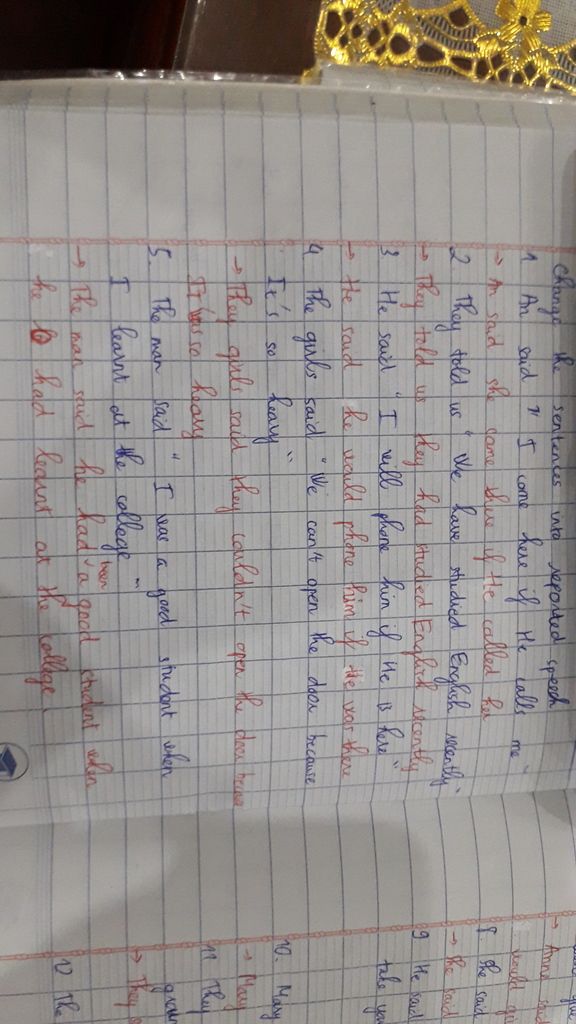 Change the sentences into reported speech
1 An said " I come here if He calls me "
→ An said she came there if He called her
2 They told us " We have studied English recently "
→ They told us they had studied English recently
3 He said " I will phone him if He is here "
→ He said he would phone him if He was there
4 The girls said " We can't open the door because
It's so heavy "
→ They girls said they couldn't open the door because
It was so heavy
5. The man said " I was a good student when
I learnt at the college "
→ The man said he had been a good student when
he had learnt at the college.
→ Anna said
would go
8. She said
→ She said
9 He said
take you
10. Mary
→ Mary
11 They
→ They
12 The